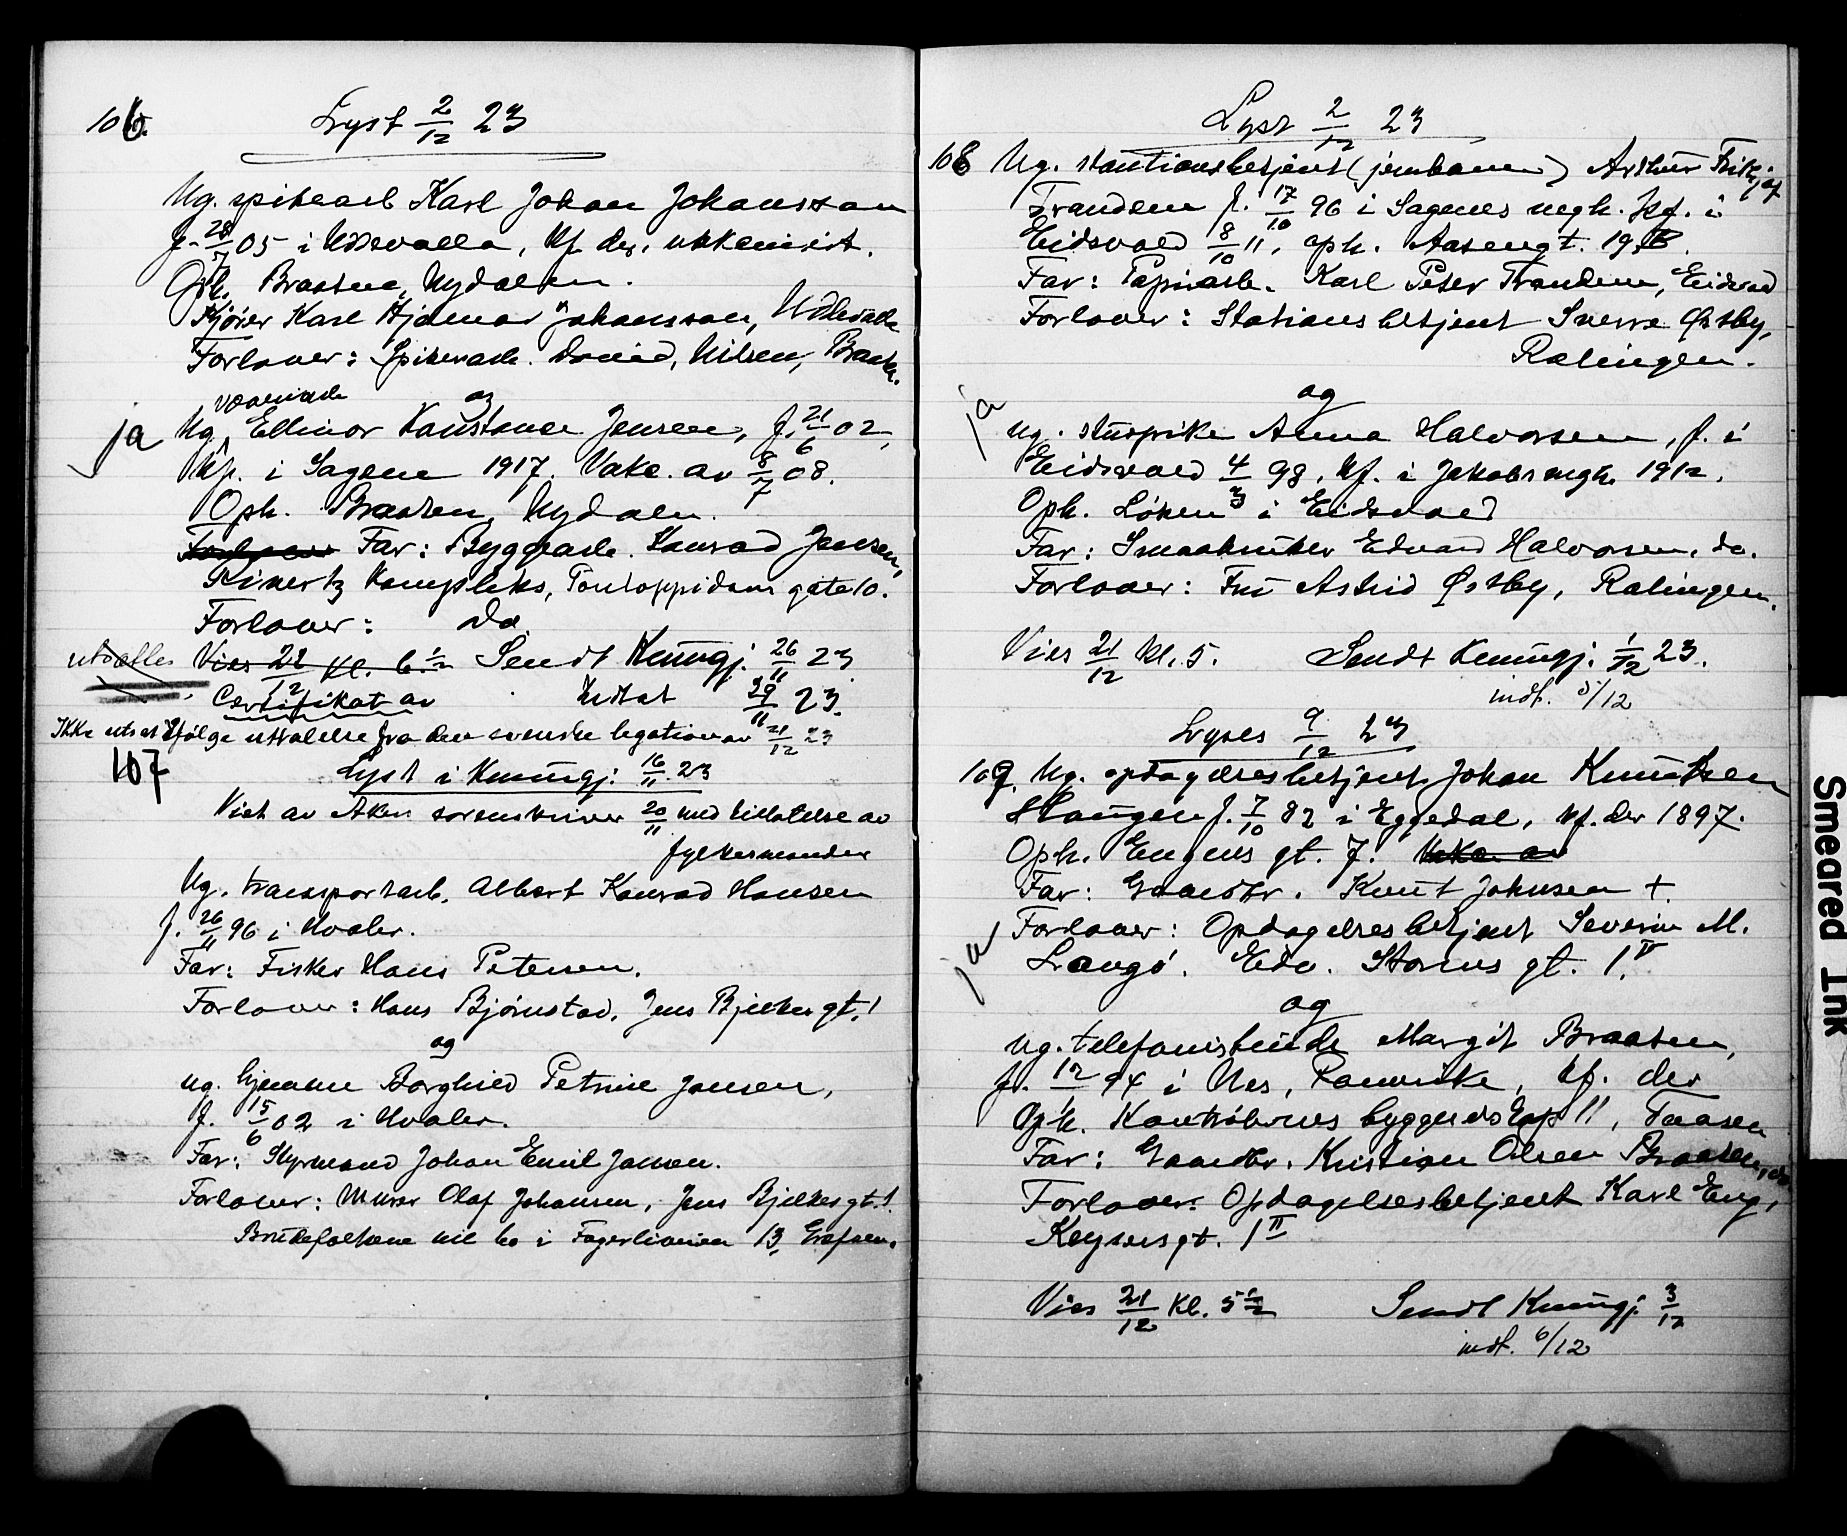 106. Lyst 2/12 23
Ug. spikearb Karl Johan Johansson
f. 28/7 05 i Uddevalla, kf der, utkemist.
Oph. Braaten, Nydalen.
Kjører Karl Hjalmar Johansson, Uddevalla
Forlover: Spikerarb. David Nilsen, Braaten.
og
ja Ug. væveriarb Ellinor Konstance Jensen, f. 21/6 02,
kf. i Sagene 1917. Vakc. av 8/7 08.
Oph. Braaten, Nydalen.
Forlover Far: Byggearb. Konrad Jensen,
kompleks, Pontoppidans gate 10.
Forlover: do
utsættes Vies 22/12 kl. 6 1/2 Sendt Kunngj. 26/11 23
Certifikat av 29/11 23.
Ikke utst. ifølge uttalelse fra den svenske legation av 21/12 23
107 Lyst i Kunngj. 16/11 23
Viet av Aker sorenskriver 20/11 med tillatelse av
fylkesmanden
Ug. transportarb. Albert Konrad Hansen
f. 26/11 96 i Hvaler.
Far: Fisker Hans Petersen.
Forlover: Hans Bjørnstad, Jens Bjelkes gt. 1
og
ug. hjemme Borghild Petrine Jansen,
f. 15/6 02 i Hvaler.
Far: Styrmand Johan Emil Jansen.
Forlover: Murer Olaf Johansen, Jens Bjelkes gt. 1.
Brudefolkene vil bo i Fagerliveien 13, Grefsen.
Lyst 2/12 23
108 Ug. stantionsbetjent (jernbanen) Arthur Fritjof
Trandem f. 17/10 96 i Sagenes megh. kf. i
Eidsvold 8/10 11, oph. Aasengt. 19B.
Far: Papirarb. Karl Peter Trandem, Eidsvold
Forlover: Stationsbetjent Sverre Østby,
Rælingen.
og
ja ug. huspike Anna Halvorsen, f. i
Eidsvold 4/3 98, kf. i Jakobs megh. 1912.
Oph. Løken i Eidsvold
Far: Smaabruker Edvard Halvorsen, do.
Forlover: Fru Astrid Østby, Rælingen.
Vies 21/12 kl. 5. Sendt Kunngj. 1/12 23.
indf. 5/12
Lyses 9/12 23
109. Ug. opdagelsesbetjent Johan Knutsen
Haugen f. 7/10 82 i Eggedal, kf. der 1897.
Oph. Engens gt. 7. Vakc. av
Far: Gaardbr. Knut Johnsen +.
ja Forlover: Opdagelsesbetjent Severin M.
Langø. Edv. Storms gt. 1 IV
og
ug. telefonistinde Margit Braaten,
f. 12/1 94 i Nes, Romerike, kf. der
Oph. byggeselskap 11, Taasen
Far: Gaardbr. Kristian Olsen Braaten, do
Forlover: Opdagelsesbetjent Karl Eng,
Keysersgt. 1 II
Vies 21/12 kl. 5 1/2 Sendt Kunngj. 3/12
indf. 6/12
Smeared Ink